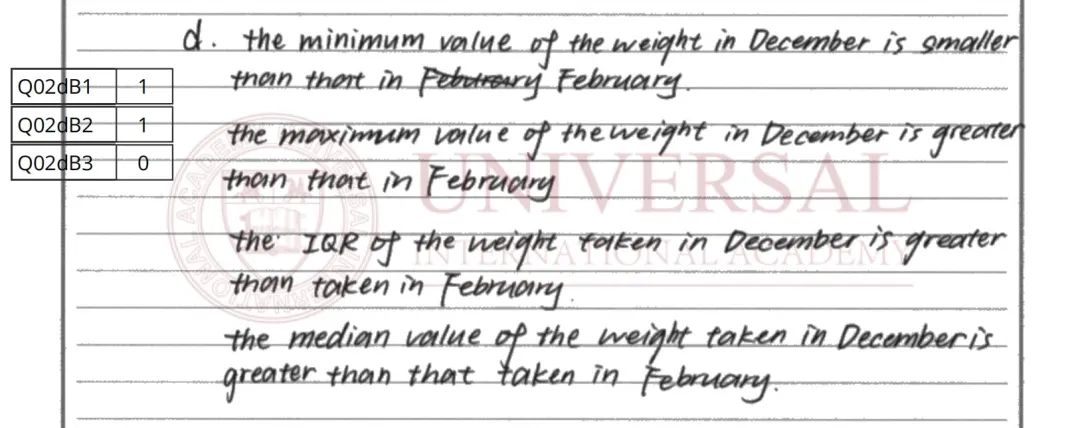 d. the minimum value of the weight in December is smaller
than that in Feburary February.
the maximum value of the weight in December is greater
than that in February
the IQR of the weight taken in December is greater
than taken in February.
the median value of the weight taken in December is
greater than that taken in February.
Q02dB1 1
Q02dB2 1
Q02dB3 0
UNIVERSAL
INTERNATIONAL ACADEMY